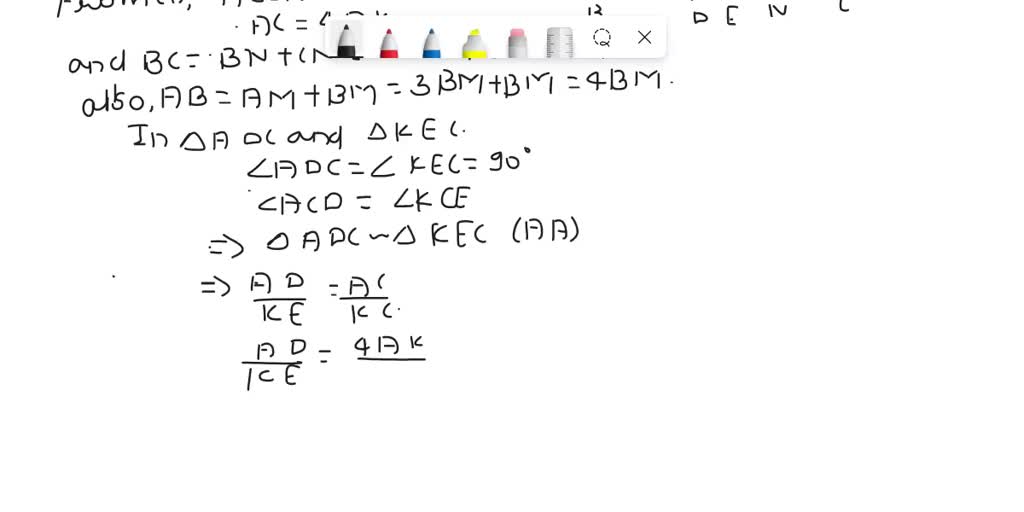 AC = 4
B
D E N C
and BC = BN + CN
also, AB = AM + BM = 3BM + BM = 4BM.
In △ADC and △KEC.
∠ADC = ∠KEC = 90°
∠ACD = ∠KCE
=> △ADC ~ △KEC (AA)
=> AD/KE = AC/KC.
AD/KE = 4AK